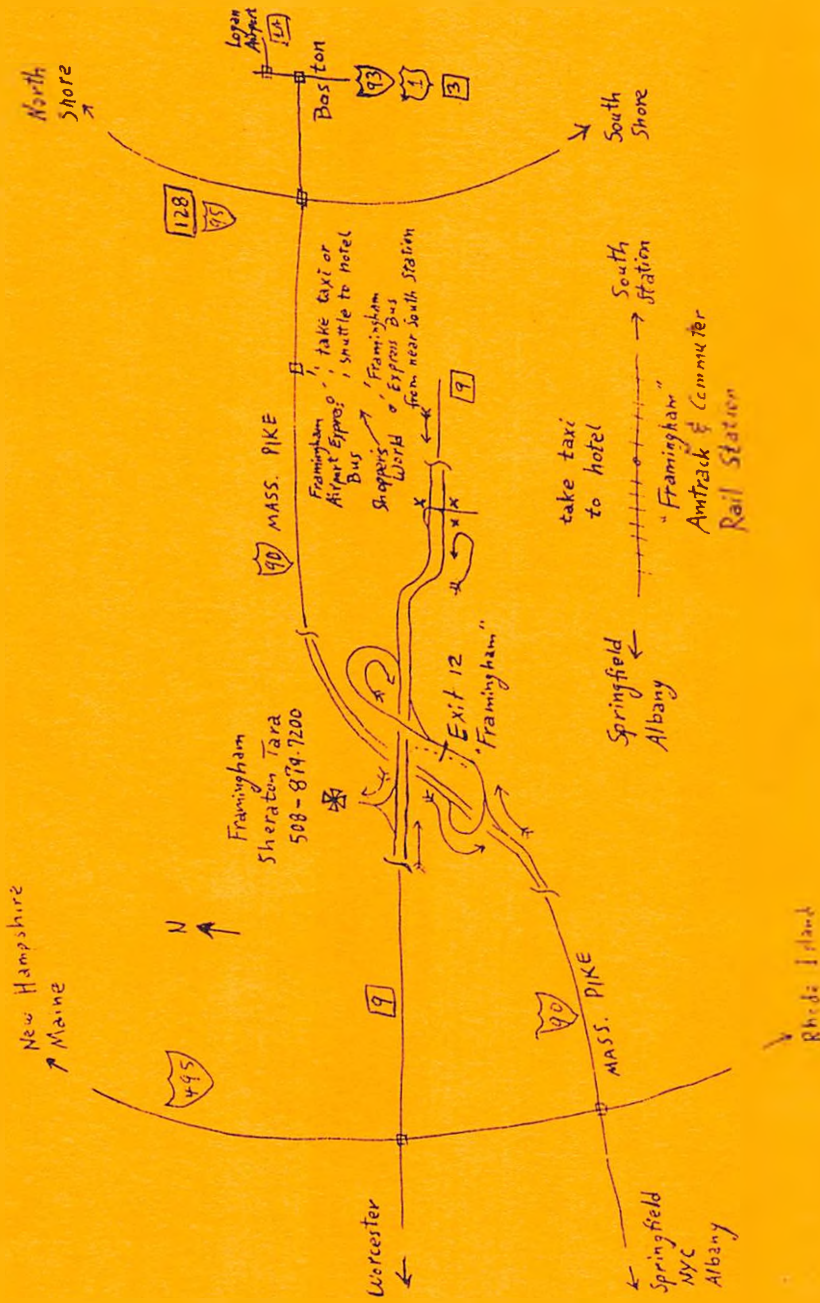 New Hampshire
Maine
495
Worcester
9
N
Springfield
NYC
Albany
90
MASS. PIKE
Rhode Island
Framingham
Sheraton Tara
508-879-7200
Exit 12
"Framingham"
90 MASS. PIKE
Framingham
Airport Express
Bus
take taxi or
shuttle to hotel
Shopper's
World
"Framingham
Express Bus
from near South Station
9
128
95
North
Shore
Logan
Airport
1A
Boston
93
1
3
South
Shore
take taxi
to hotel
Springfield
Albany
South
Station
"Framingham"
Amtrack & Commuter
Rail Station